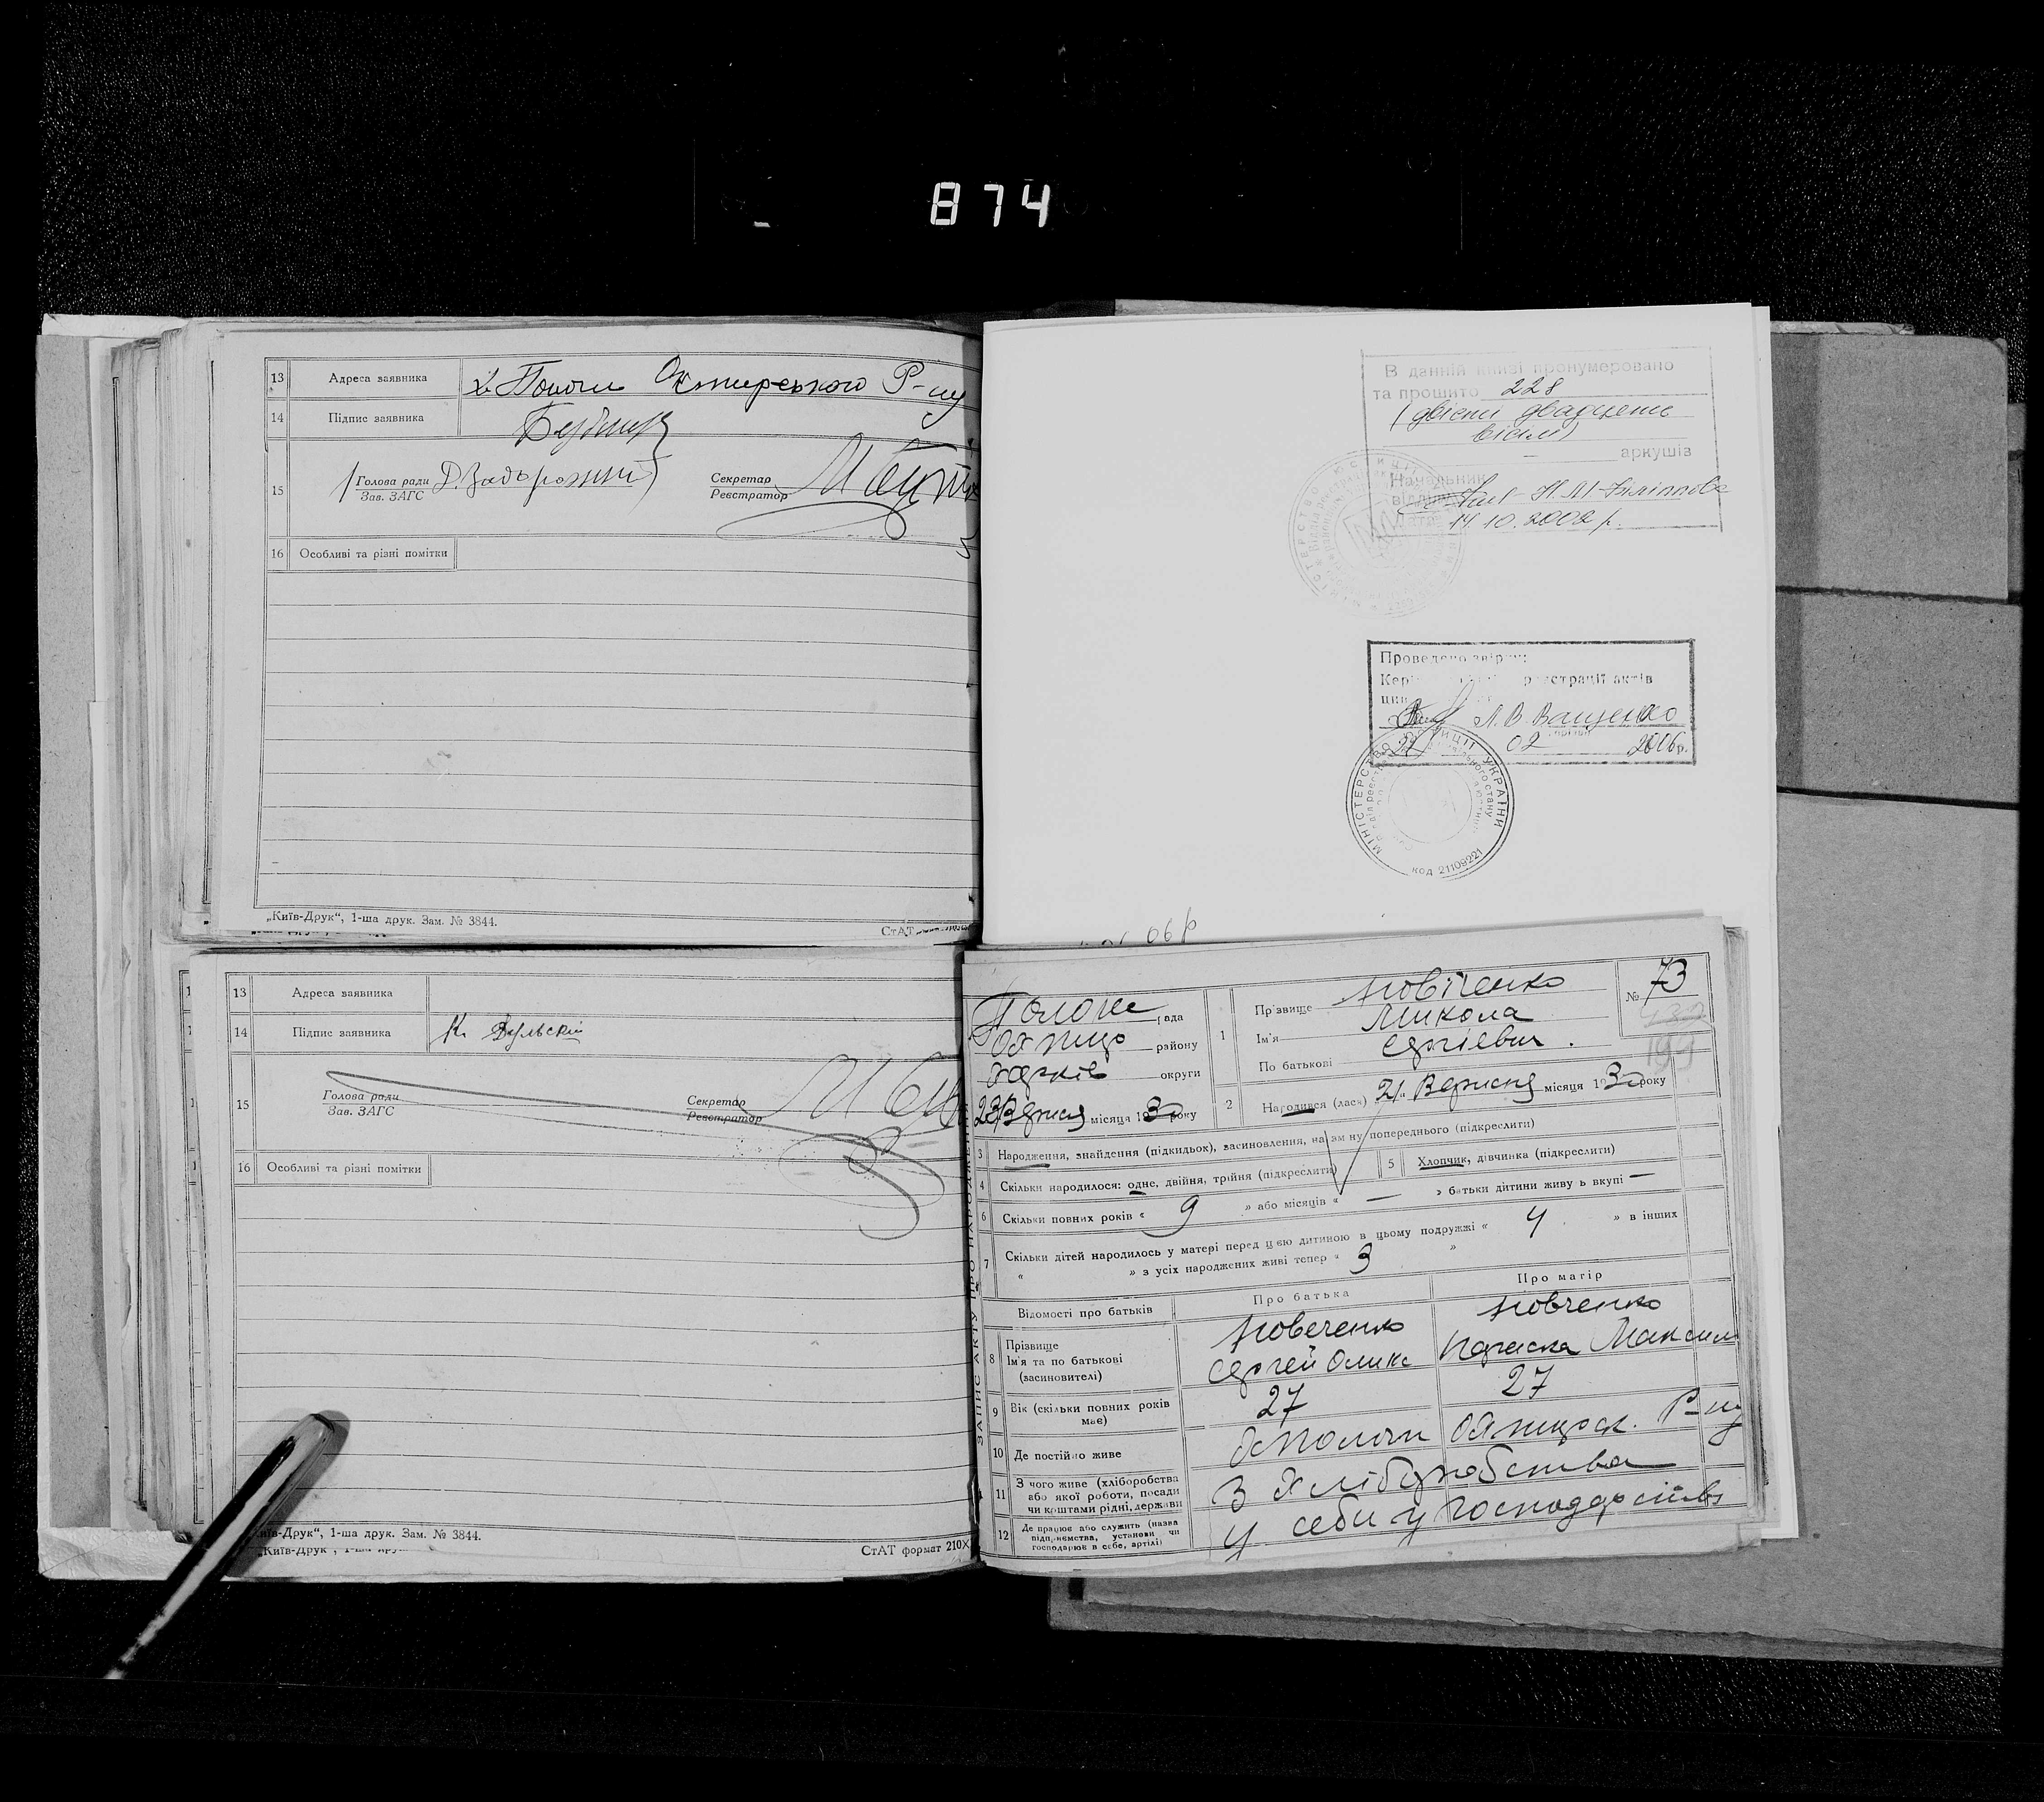 874
13 Адреса заявника х. Пологи Охтирського Р-ну
14 Підпис заявника
15 Голова ради Д. Задорожний Секретар
Зав. ЗАГС Реєстратор
16 Особливі та різні помітки
„Київ-Друк“, 1-ша друк. Зам. № 3844.
СтАТ
В данній книзі пронумеровано
та прошито 228
(двісті двадцять
вісім)
аркушів
Начальник
відділу Н.М.
14.10.2002 р.
Проведено звірку:
реєстрації актів
Л.В. Ващенко
02 2006р.
МІНІСТЕРСТВО ЮСТИЦІЇ УКРАЇНИ
код 21109221
06р
13 Адреса заявника
14 Підпис заявника К.
15 Голова ради Секретар
Зав. ЗАГС Реєстратор
16 Особливі та різні помітки
„Київ-Друк“, 1-ша друк. Зам. № 3844.
СтАТ формат 210×
ЗАПИС АКТУ ПРО НАРОДЖЕН
рада
району
Харків округи
23 Вересня місяця 1930 року
1 Прізвище
Ім'я Микола
По батькові Сергієвич.
№ 73
2 Народився (лась) 21 Вересня місяця 1930 року
3 Народження, знайдення (підкидьох), засиновлення, на зміну попереднього (підкреслити)
4 Скільки народилося: одне, двійня, трійня (підкреслити) 5 Хлопчик, дівчинка (підкреслити)
6 Скільки повних років « 9 » або місяців « — » батьки дитини живуть вкупі —
7 Скільки дітей народилось у матері перед цією дитиною в цьому подружжі « 4 » в інших
« » з усіх народжених живі тепер « 3 »
Відомості про батьків Про батька Про матір
8 Прізвище
Ім'я та по батькові
(засиновителі)
9 Вік (скільки повних років
має) 27 27
10 Де постійно живе х Пологи Охтирськ. Р-ну
11 З чого живе (хліборобства
або якої роботи, посади
чи коштами рідні, держави З Хліборобства
12 Де працює або служить (назва
підприємства, установи чи
господарює в себе, артілі) У себе у господарстві